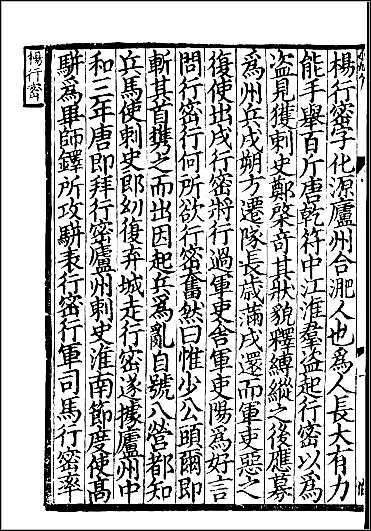 楊行密字化源廬州合淝人也爲人長大有力
能手舉百斤唐乾符中江淮羣盜起行密以爲
盜見獲刺史鄭棨奇其狀貌釋縛縱之後應募
爲州兵戍朔方遷隊長歲滿戍還而軍吏惡之
復使出戍行密將行過軍吏舍軍吏陽爲好言
問行密行何所欲行密奮然曰惟少公頭爾即
斬其首攜之而出因起兵爲亂自號八營都知
兵馬使刺史郎幼復弃城走行密遂據廬州中
和三年唐即拜行密廬州刺史淮南節度使高
駢爲畢師鐸所攻駢表行密行軍司馬行密率
楊行密